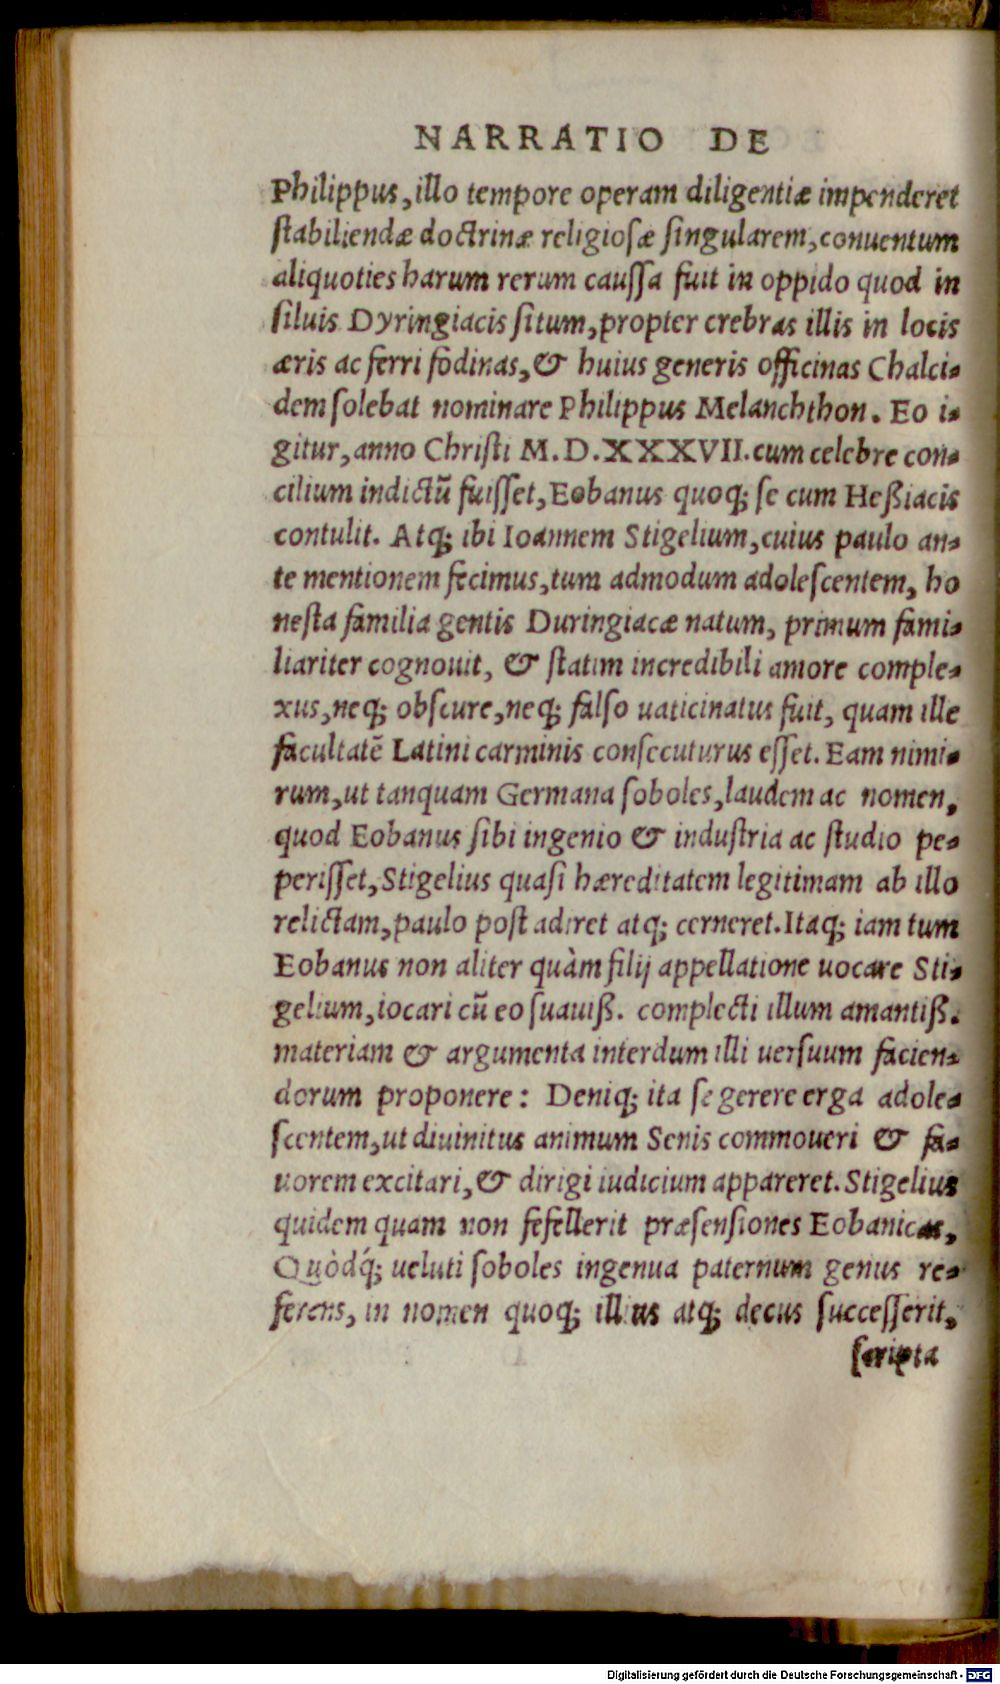 NARRATIO DE
Philippus, illo tempore operam diligentiæ impenderet
ſtabiliendæ doctrinæ religioſæ ſingularem, conuentum
aliquoties harum rerum cauſſa fuit in oppido quod in
ſiluis Dyringiacis ſitum, propter crebras illis in locis
æris ac ferri fodinas, & huius generis officinas Chalci-
dem ſolebat nominare Philippus Melanchthon. Eo i-
gitur, anno Chriſti M. D. XXXVII. cum celebre con-
cilium indictũ fuiſſet, Eobanus quoq; ſe cum Heßiacis
contulit. Atq; ibi Ioannem Stigelium, cuius paulo an-
te mentionem fecimus, tum admodum adoleſcentem, ho
neſta familia gentis Duringiacæ natum, primum fami-
liariter cognouit, & ſtatim incredibili amore comple-
xus, neq; obſcure, neq; falſo uaticinatus fuit, quam ille
facultatẽ Latini carminis conſecuturus eſſet. Eam nimi-
rum, ut tanquam Germana ſoboles, laudem ac nomen,
quod Eobanus ſibi ingenio & induſtria ac ſtudio pe-
periſſet, Stigelius quaſi hæreditatem legitimam ab illo
relictam, paulo poſt adiret atq; cerneret. Itaq; iam tum
Eobanus non aliter quàm filij appellatione uocare Sti-
gelium, iocari cũ eo ſuauiß. complecti illum amantiß.
materiam & argumenta interdum illi uerſuum facien-
dorum proponere: Deniq; ita ſe gerere erga adole-
ſcentem, ut diuinitus animum Senis commoueri & fa-
uorem excitari, & dirigi iudicium appareret. Stigelius
quidem quam non fefellerit præſenſiones Eobanicas,
Quòdq́; ueluti ſoboles ingenua paternum genus re-
ferens, in nomen quoq; illius atq; decus ſucceſſerit,
ſcripta
Digitalisierung gefördert durch die Deutsche Forschungsgemeinschaft - DFG